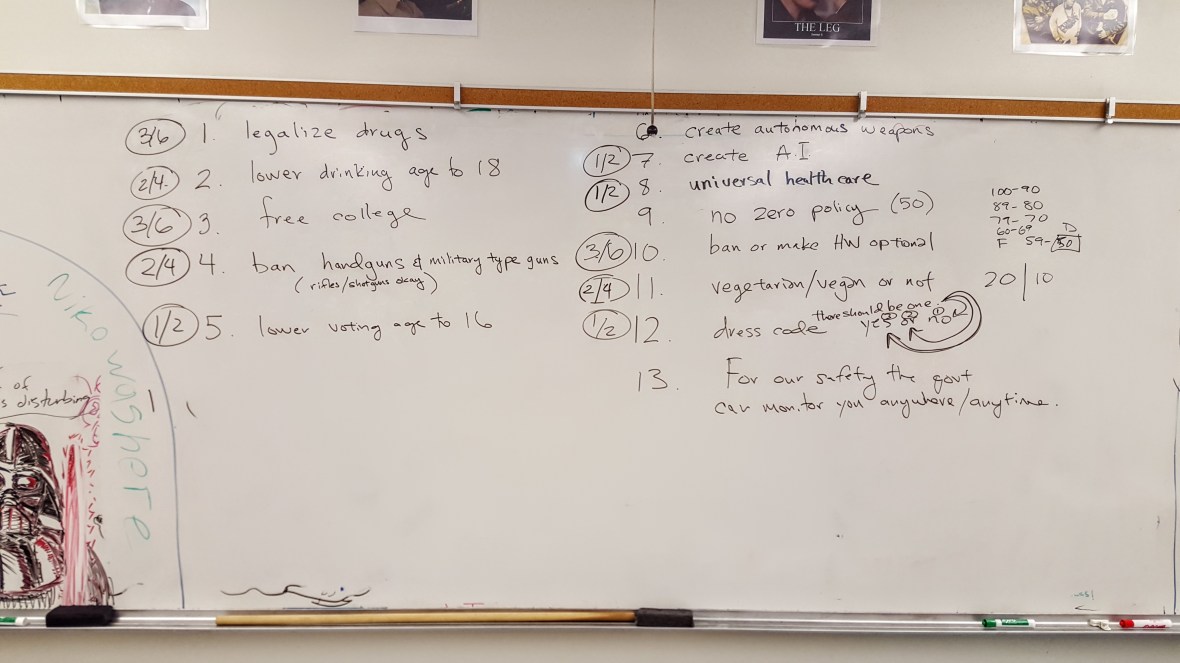 THE LEG
3/6 1. legalize drugs
2/4 2. lower drinking age to 18
3/6 3. free college
2/4 4. ban handguns & military type guns
(rifles/shotguns okay)
1/2 5. lower voting age to 16
6. create autonomous weapons
1/2 7. create A.I
1/2 8. universal health care
9. no zero policy (50)
3/6 10. ban or make HW optional
2/4 11. vegetarian/vegan or not
there should be one.
1/2 12. dress code yes or no
13. For our safety the govt
can monitor you anywhere/anytime.
100-90
89-80
79-70
60-69 D
F 59-50
20 | 10
Niko was here
of
s disturbing